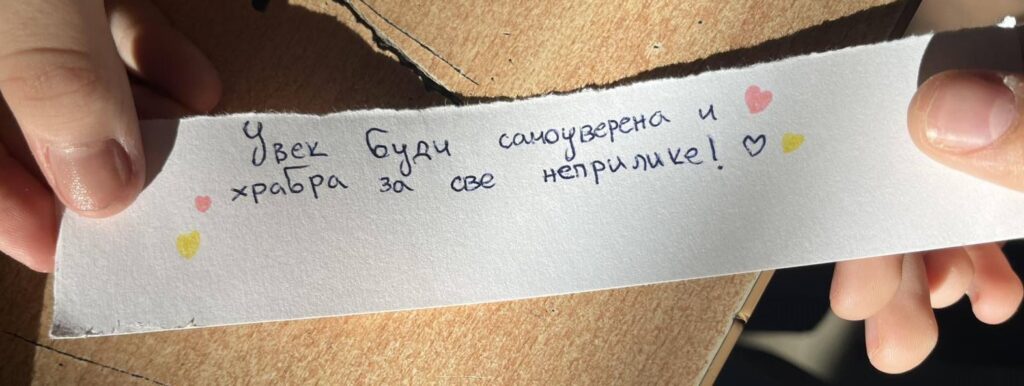 Увек буди самоуверена и
храбра за све неприлике! ♡